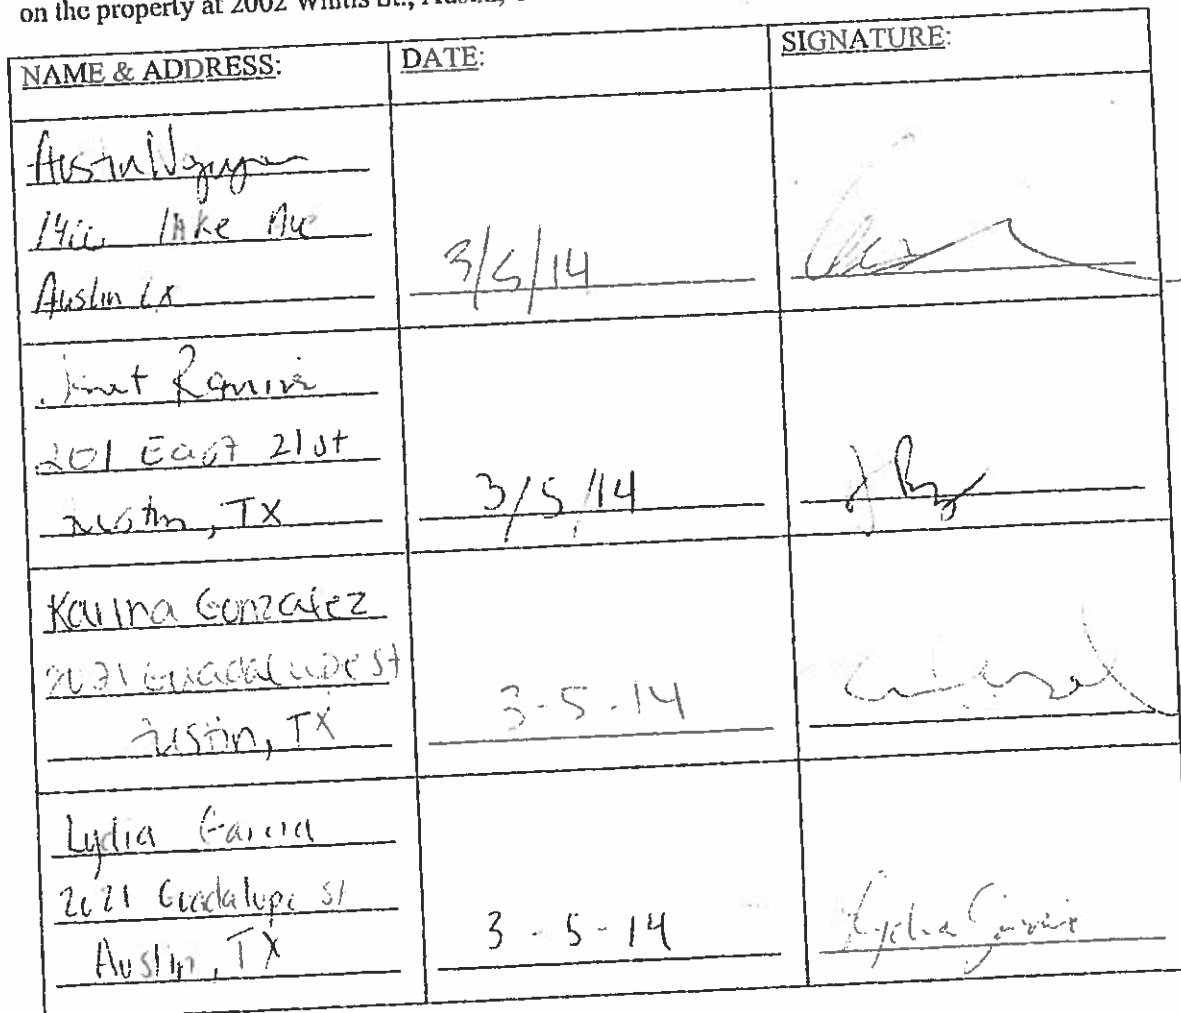 on the property at 2002 Whitis St., Austin,
NAME & ADDRESS: DATE: SIGNATURE:
Austin Nguyen
Lake Ave
Austin TX 3/5/14
Janet Ramirez
201 East 21st
Austin, TX 3/5/14
Karina Gonzalez
2021 Guadalupe St
Austin, TX 3-5-14
Lydia Garcia
2021 Guadalupe St
Austin, TX 3-5-14 Lydia Garcia